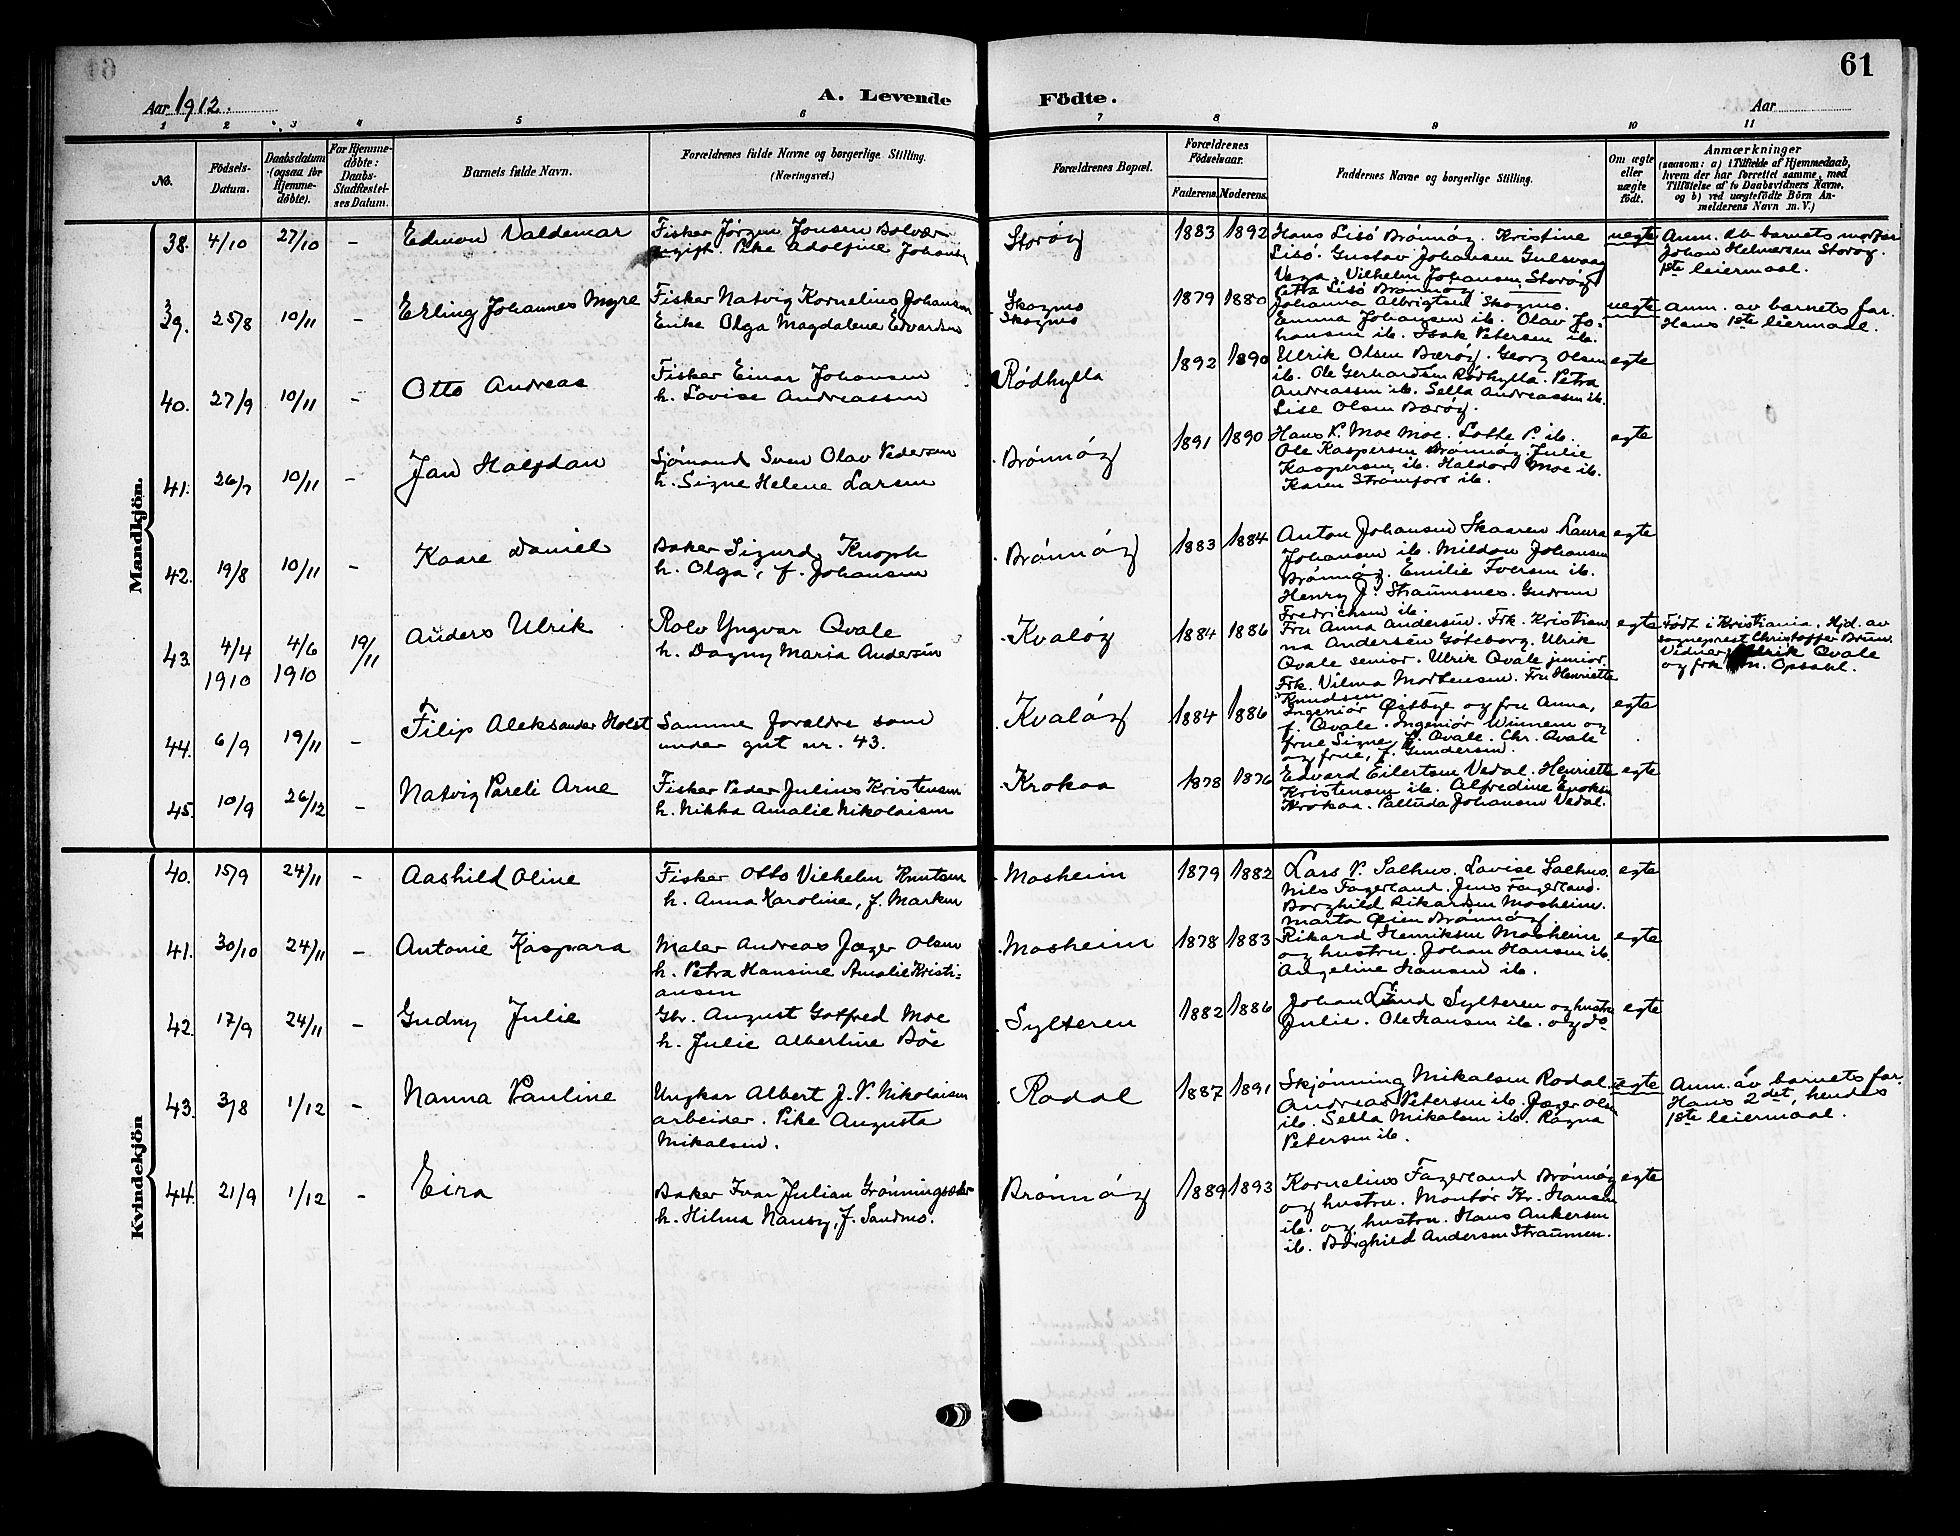 61
Aar 1912.
A. Levende Födte.
Aar
1 2 3 4 5 6 7 8 9 10 11
No.
Födsels-Datum.
Daabsdatum (ogsaa for Hjemmedöbte).
For Hjemmedöbte: Daabs-Stadfæstelses Datum.
Barnets fulde Navn.
Forældrenes fulde Navne og borgerlige Stilling. (Næringsvei.)
Forældrenes Bopæl.
Forældrenes Födselsaar.
Faderens. Moderens.
Faddernes Navne og borgerlige Stilling.
Om ægte eller uægte födt.
Anmærkninger
(saasom: a) i Tilfælde af Hjemmedaab,
hvem der har forrettet samme, med
Tilföielse af to Daabsvidners Navne,
og b) ved uægtefödte Börn Anmelderens Navn m. V.)
Mandkjön.
38. 4/10 27/10 –
Edmon Valdemar
Fisker Jörgen Jonsen Bolvær
ugift. Pike Adolfine Johansen
Storöy
1883 1892
Hans Lisö Brönnöy. Kristine
Lisö. Gustav Johansen Gulsvaag
Vega. Vilhelm Johansen Storöy
Petra Lisö Brönnöy.
uegte
Anm. av barnets morfar
Johan Helmersen Storöy.
1ste leiermaal.
39. 25/8 10/11 –
Erling Johannes Myre
Fisker Natvig Kornelius Johansen
Enke Olga Magdalene Edvardsen
Skogmo
Skogmo
1879 1880
Johanna Albrigtsen Skogmo.
Emma Johansen ib. Olav Jo-
hansen ib. Isak Petersen ib.
uegte
Anm. av barnets far.
Hans 1ste leiermaal.
40. 27/9 10/11 –
Otto Andreas
Fisker Einar Johansen
h. Lovise Andreassen
Rödhylla
1892 1890
Ulrik Olsen Bæröy. Georg Olsen
ib. Ole Gerhardsen Rödhylla. Petra
Andreassen ib. Sella Andreassen ib.
Lise Olsen Bæröy.
egte
41. 26/7 10/11 –
Jan Halfdan
Sjömand Sven Olav Pedersen
h. Signe Helene Larsen
Brönnöy
1891 1890
Hans P. Moe Moe. Lotte P. ib.
Ole Kaspersen Brönnöy. Julie
Kaspersen ib. Haldor Moe ib.
Karen Strömfors ib.
egte
42. 19/8 10/11 –
Kaare Daniel
Baker Sigurd Knoph
h. Olga, f. Johansen
Brönnöy
1883 1884
Anton Johansen Skaaren Laura
Johansen ib. Mildon Johansen
Brönnöy. Emilie Iversen ib.
Henry J. Straumsnes. Gudrun
Fredrichsen ib.
egte
43. 4/4 1910 4/6 1910 19/11
Anders Ulrik
Rolv Yngvar Qvale
h. Dagny Maria Andersén
Kvalöy
1884 1886
Fru Anna Andersen. Frk. Kristian
na Andersén Göteborg. Ulrik
Qvale senior. Ulrik Qvale junior.
Frk. Vilma Mortensen. Fru Henriette
Knudsen
egte
Födt i Kristiania. Hjd. av
sogneprest Christoffer Bruun
Vidner: Ulrik Qvale
og frk. M. Opsahl.
44. 6/9 19/11 –
Filip Aleksander Holst
Samme forældre som
under gut nr. 43.
Kvalöy
1884 1886
Ingeniör Östbye og fru Anna,
f. Qvale. Ingeniör Winnem og
frue Signe, f. Qvale. Chr. Qvale
og frue, f. Gundersen.
egte
45. 10/9 26/12 –
Natvig Pareli Arne
Fisker Peder Julius Kristensen
h. Nikka Amalie Nikolaisen
Krokaa
1878 1876
Edvard Eilertsen Vedal. Henriette
Kristensen ib. Alfredine Enoksen
Krokaa. Palluda Johansen Vedal.
egte
Kvindekjön
40. 15/9 24/11 –
Aashild Oline
Fisker Otto Vilhelm Knutsen
h. Anna Karoline, f. Markus
Mosheim
1879 1882
Lars P. Salhus. Lovise Salhus.
Nils Fagerland. Jens Fagerland.
Borghild Rikardsen Mosheim.
Marta Öien Brönnöy.
egte
41. 30/10 24/11 –
Antonie Kaspara
Maler Andreas Jæger Olsen
h. Petra Hansine Amalie Kristi-
ansen
Mosheim
1878 1883
Rikard Henriksen Mosheim
og hustru. Johan Hansen ib.
Angeline Hansen ib.
egte
42. 17/9 24/11 –
Gudny Julie
Gbr. August Gotfred Moe
h. Julie Albertine Böe
Sylteren
1882 1886
Johan Lund Sylteren og hustru
Julie. Ole Hansen ib. og do
egte
43. 3/8 1/12 –
Nanna Pauline
Ungkar Albert J. P. Nikolaisen
arbeider. Pike Augusta
Mikalsen.
Rodal
1887 1891
Skjönning Mikalsen Rodal.
Andreas Petersen ib. Jæger Olsen
ib. Sella Mikalsen ib. Ragna
Petersen ib.
uegte
Anm. av barnets far.
Hans 2det, hendes
1ste leiermaal.
44. 21/9 1/12 –
Eira
Baker Ivar Julian Grönningsæter
h. Hilma Nansy, f. Sandmo.
Brönnöy
1889 1893
Kornelius Fagerland Brönnöy
og hustru. Montör Kr. Hansen
ib. og hustru. Hans Ankersen
ib. Borghild Andersen Straumen.
egte